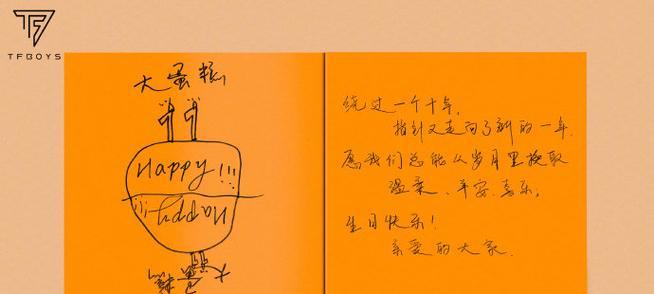 TFBOYS
大蛋糕
Happy!!!
Happy!!!
大蛋糕
绕过一个十年,
指针又走向了新的一年.
愿我们总能从岁月里换取
温柔、平安、喜乐,
生日快乐!
亲爱的大家.